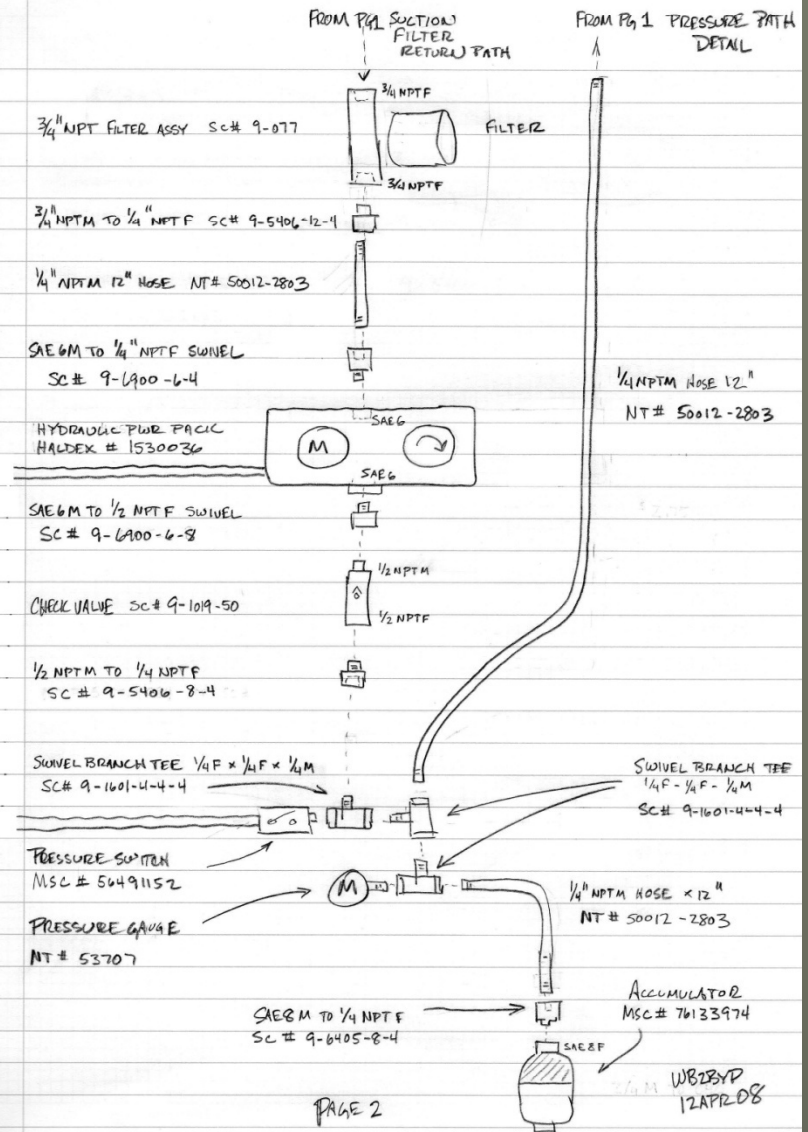 FROM PG1 SUCTION
FILTER
RETURN PATH
FROM PG 1 PRESSURE PATH
DETAIL
3/4 NPTF
3/4" NPT FILTER ASSY SC# 9-077
FILTER
3/4 NPTF
3/4" NPTM TO 1/4" NPTF SC# 9-5406-12-4
1/4" NPTM 12" HOSE NT# 50012-2803
SAE6M TO 1/4" NPTF SWIVEL
SC# 9-6900-6-4
1/4 NPTM HOSE 12"
NT# 50012-2803
HYDRAULIC PWR PACK
HALDEX # 1530036
SAE6
M
SAE6
SAE6M TO 1/2 NPTF SWIVEL
SC# 9-6900-6-8
1/2 NPTM
CHECK VALVE SC# 9-1019-50
1/2 NPTF
1/2 NPTM TO 1/4 NPTF
SC# 9-5406-8-4
SWIVEL BRANCH TEE 1/4F x 1/4F x 1/4M
SC# 9-1601-4-4-4
SWIVEL BRANCH TEE
1/4F - 1/4F - 1/4M
SC# 9-1601-4-4-4
PRESSURE SWITCH
MSC# 56491152
M
1/4" NPTM HOSE x 12"
NT# 50012-2803
PRESSURE GAUGE
NT# 53707
SAE8M TO 1/4 NPTF
SC# 9-6405-8-4
ACCUMULATOR
MSC# 76133974
SAE8F
WB2BYD
12APR08
PAGE 2